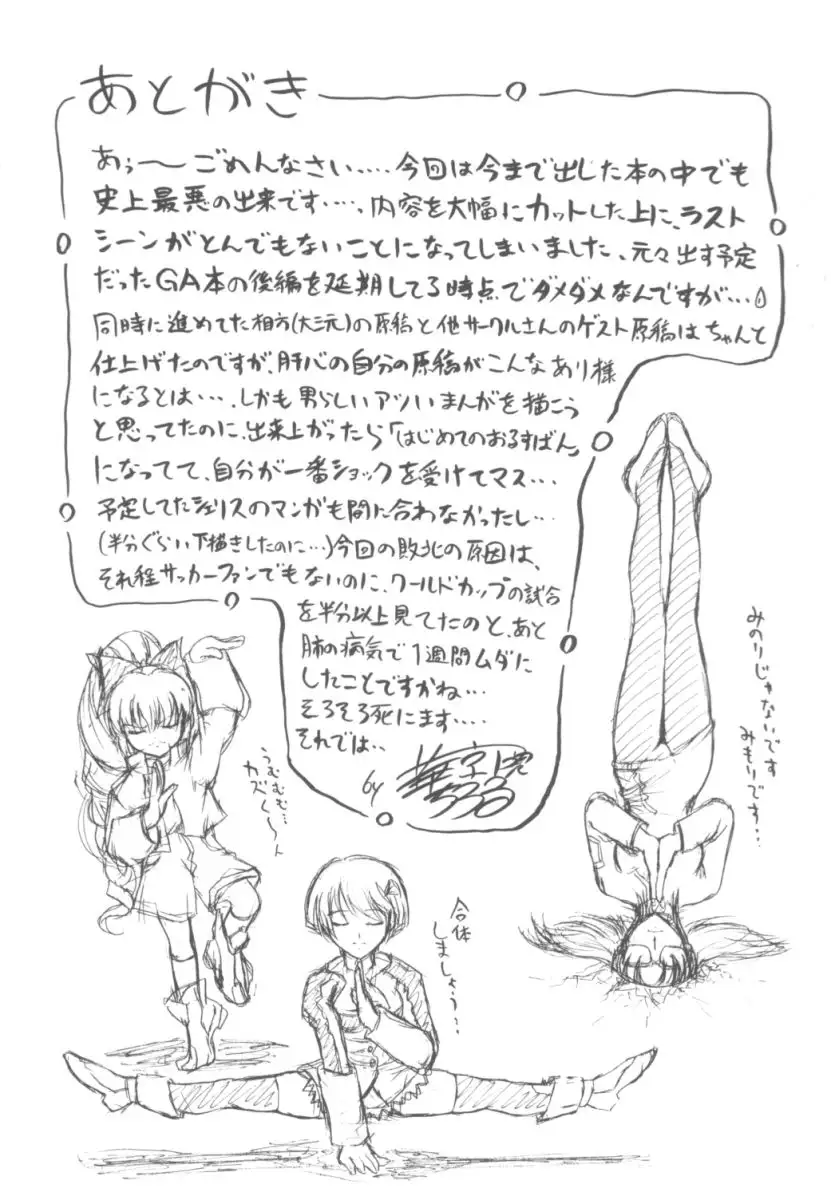 あとがき
あぅ〜ごめんなさい.... 今回は今まで出した本の中でも
史上最悪の出来です.....、内容を大幅にカットした上に、ラスト
シーンがとんでもないことになってしまいました、元々出す予定
だったGA本の後編を延期してる時点でダメダメなんですが...
同時に進めてた相方(大三元)の原稿と他サークルさんのゲスト原稿はちゃんと
仕上げたのですが、肝心の自分の原稿がこんなあり様
になるとは....、しかも男らしいアツいまんがを描こう
と思ってたのに、出来上がったら「はじめてのおるすばん」
になってて、自分が一番ショックを受けてマス...
予定してたシェリスのマンガも間に合わなかったし...
(半分ぐらい下描きしたのに...)今回の敗北の原因は、
それ程サッカーファンでもないのに、ワールドカップの試合
を半分以上見てたのと、あと
肺の病気で1週間ムダに
したことですかね...
そろそろ死にます....
それでは..
by
みのりじゃないです
みもりです...
うむむむ...
カズく〜ん
合体
しましょう...